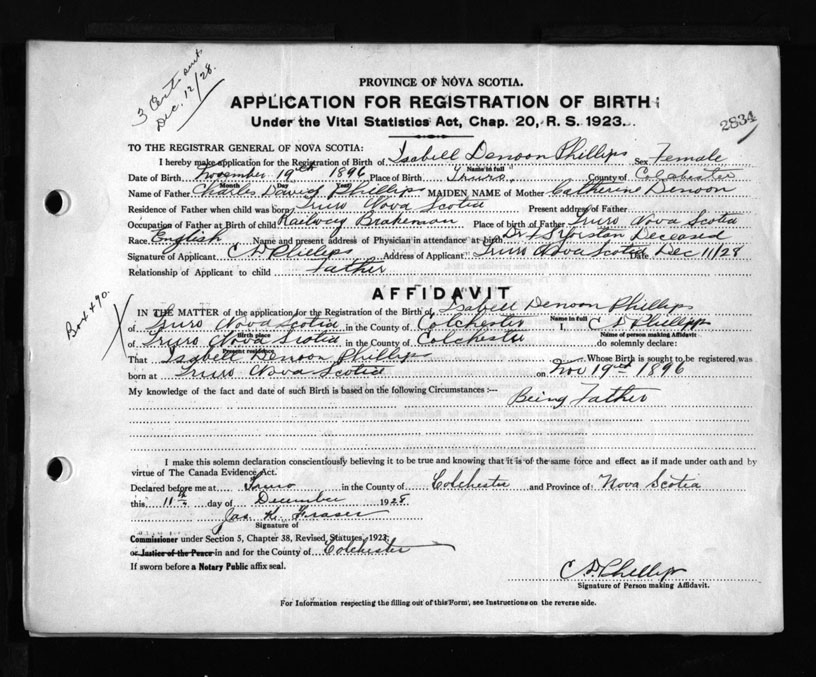 3 Certs sent
Dec. 12/28.
PROVINCE OF NOVA SCOTIA.
APPLICATION FOR REGISTRATION OF BIRTH
Under the Vital Statistics Act, Chap. 20, R. S. 1923.
2834
TO THE REGISTRAR GENERAL OF NOVA SCOTIA:
I hereby make application for the Registration of Birth of Isabell Denoon Phillips Sex Female
Name in full
Date of Birth November 19th 1896 Place of Birth Truro County of Colchester
Month Day Year
Name of Father Charles David Phillips MAIDEN NAME of Mother Catherine Denoon
Residence of Father when child was born Truro Nova Scotia Present address of Father
Occupation of Father at Birth of child Railway Brakeman Place of birth of Father Truro Nova Scotia
Race English Name and present address of Physician in attendance at birth Dr Yorston Deceased
Signature of Applicant C D Phillips Address of Applicant Truro Nova Scotia Date Dec 11/28
Relationship of Applicant to child Father
AFFIDAVIT
Box 490.
IN THE MATTER of the application for the Registration of the Birth of Isabell Denoon Phillips
Name in full
of Truro Nova Scotia in the County of Colchester I, C D Phillips
Birth place Name of person making Affidavit
of Truro Nova Scotia in the County of Colchester do solemnly declare:
Present residence
That Isabell Denoon Phillips Whose Birth is sought to be registered, was
born at Truro Nova Scotia on Nov 19th 1896
My knowledge of the fact and date of such Birth is based on the following Circumstances :—
Being Father
I make this solemn declaration conscientiously believing it to be true and knowing that it is of the same force and effect as if made under oath and by
virtue of The Canada Evidence Act.
Declared before me at Truro in the County of Colchester and Province of Nova Scotia
this 11th day of December 1928
Jas K. Fraser
Signature of
Commissioner under Section 5, Chapter 38, Revised Statutes, 1923;
or Justice of the Peace in and for the County of Colchester
If sworn before a Notary Public affix seal.
C D Phillips
Signature of Person making Affidavit.
For Information respecting the filling out of this Form, see Instructions on the reverse side.